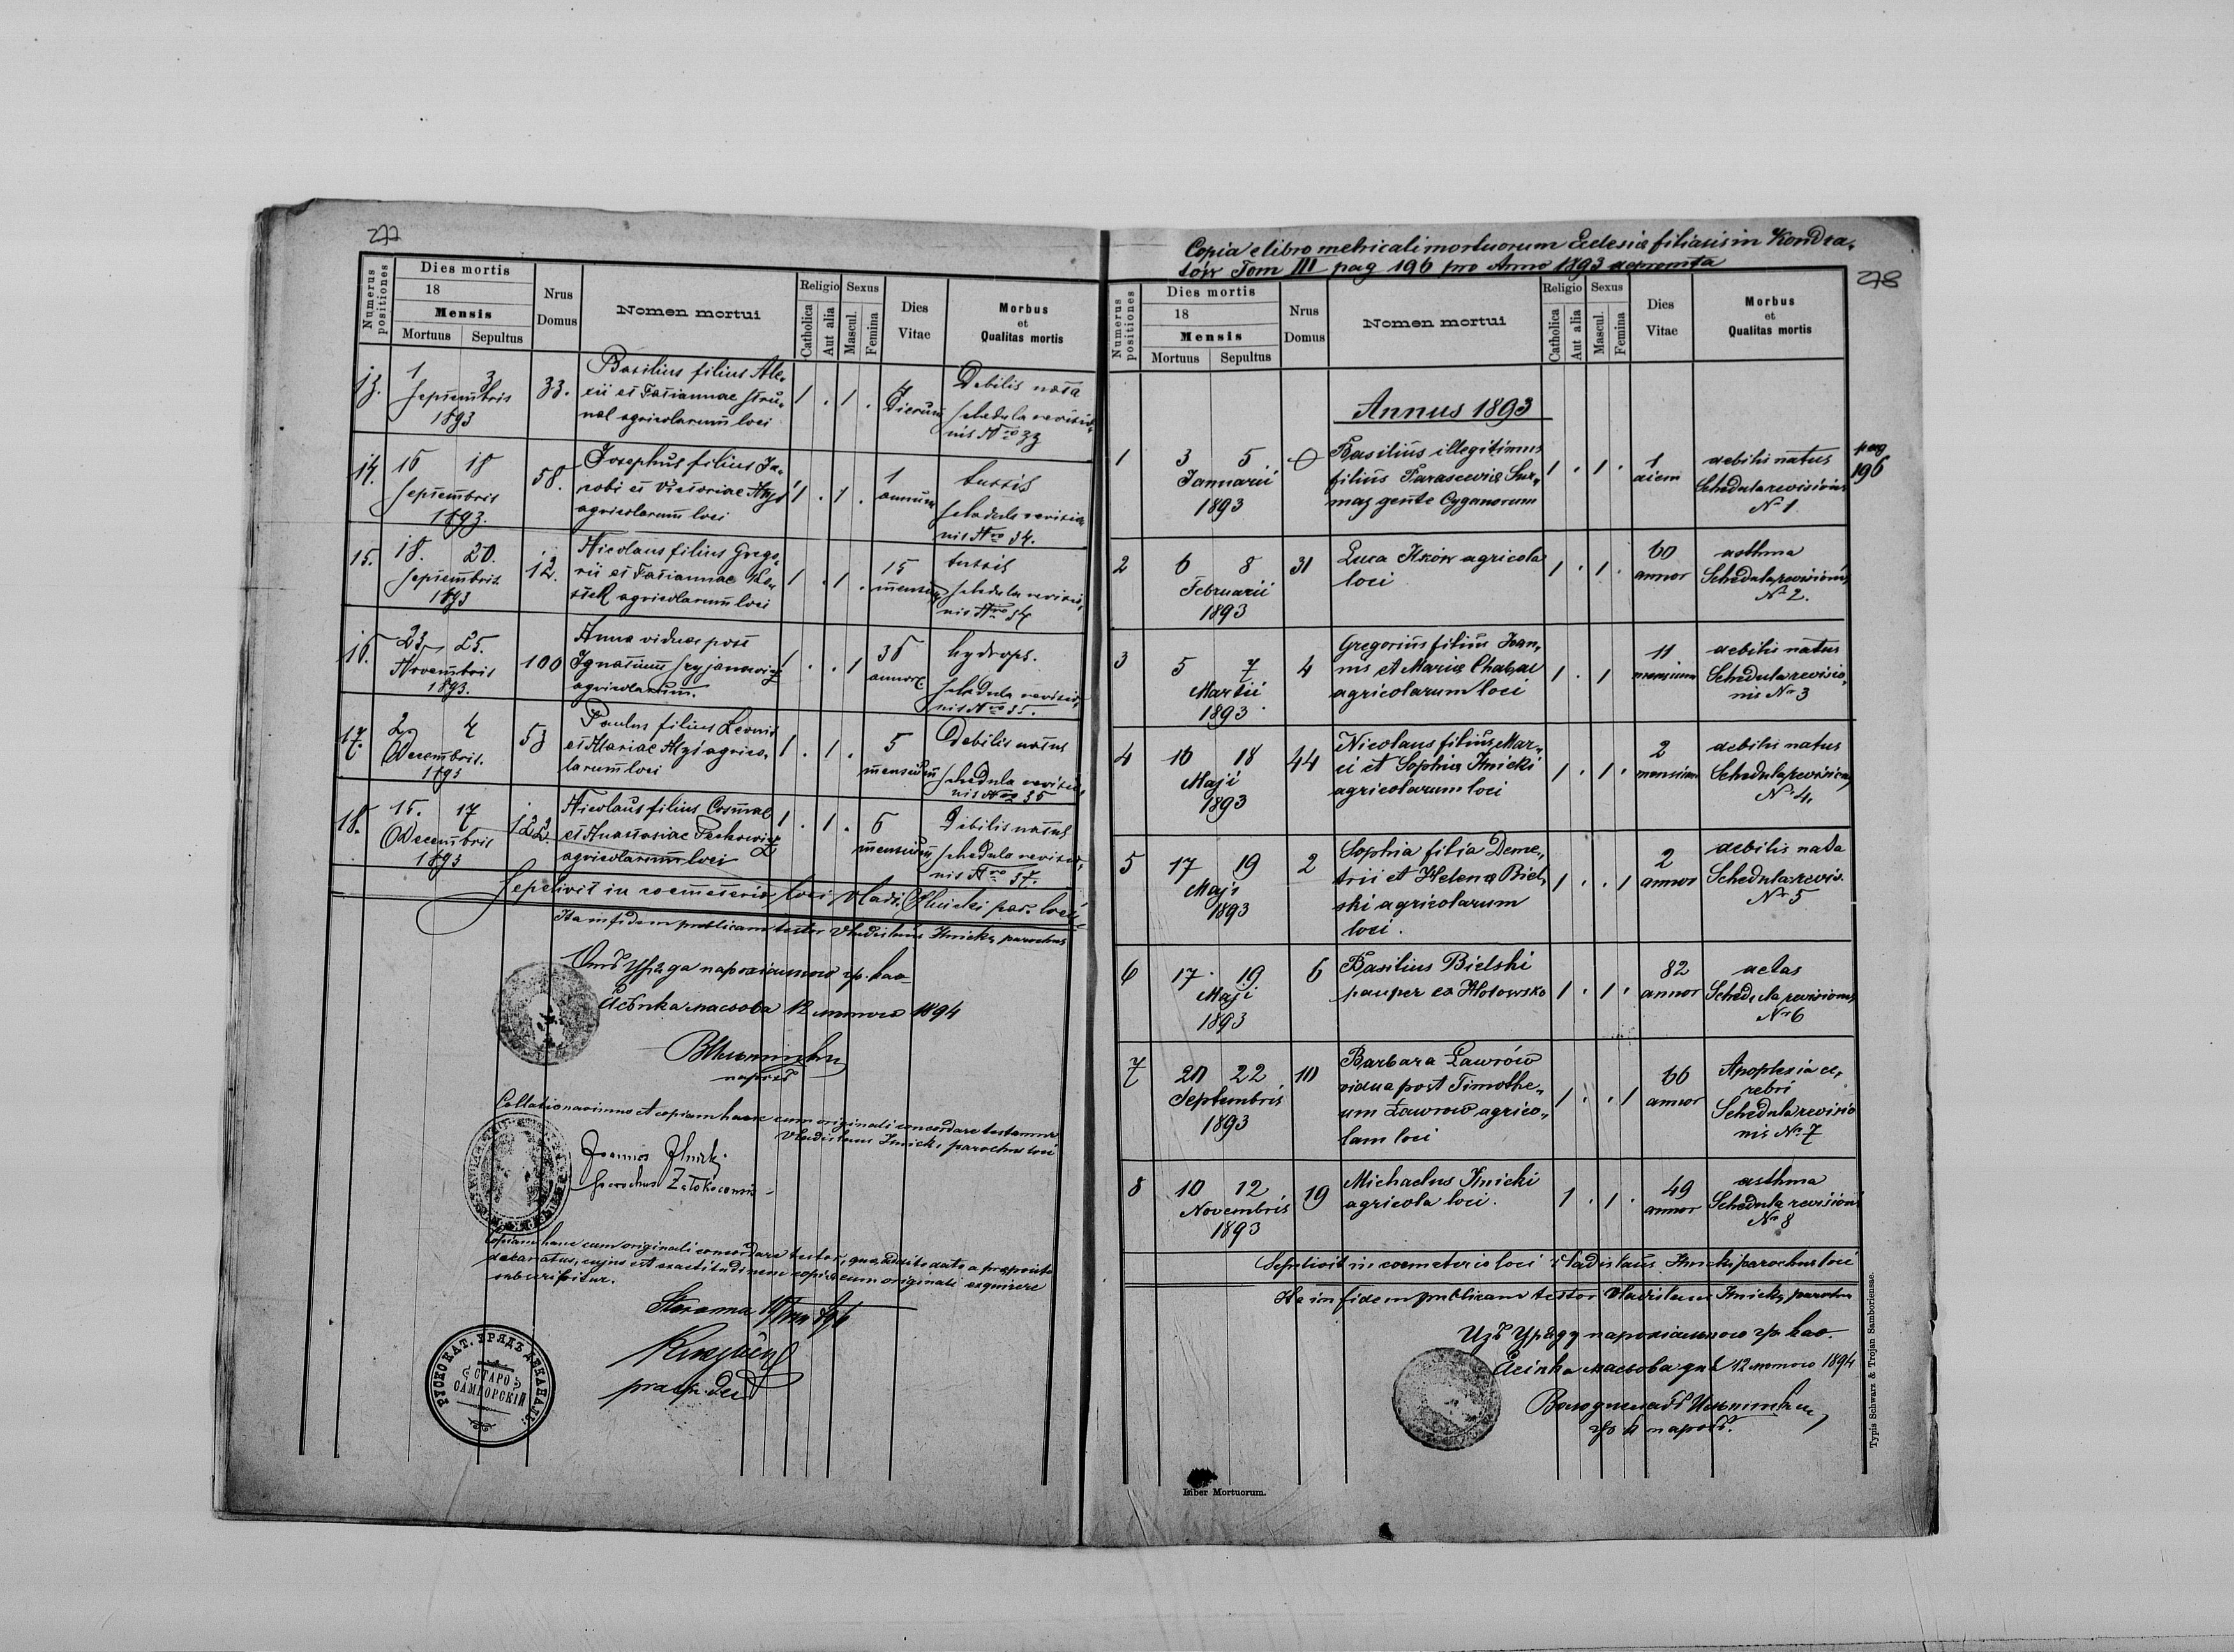 277
Numerus positiones
Dies mortis
18
Mensis
Mortuus Sepultus
Nrus Domus
Nomen mortui
Religio
Catholica
Aut alia
Sexus
Mascul.
Femina
Dies Vitae
Morbus
et
Qualitas mortis
13. 1 3 33. Basilius filius Ale- 1 . 1 . Debilis nata
Septembris xii et Tatiannae dierum schedula revisio-
1893 agricolarum loci nis Nro 33
14. 16 18 58. Josephus filius Ja- 1 . 1 . 1 tussis
Septembris cobi et Victoriae annum schedula revisio-
1893. agricolarum loci nis Nro 34.
15. 18. 20. 12. Nicolaus filius Grego- 1 . 1 . 15 tussis
Septembris rii et Tatiannae mensium schedula revisio-
1893 agricolarum loci nis Nro 34
16. 23 25. 100 Anna vidua post 1 . . 1 36 hydrops.
Novembris Ignatium annor. schedula revisio-
1893. agricolarum. nis Nro 35.
17. 2 4 53 Paulus filius Leonis 1 . 1 . 5 Debilis natus
Decembris. et Mariae agrico- mensium schedula revisio-
1893 larum loci nis Nro 36
18. 15. 17 122. Nicolaus filius Cosmae 1 . 1 . 6 Debilis natus
Decembris et Anastasiae mensium schedula revisio-
1893 agricolarum loci nis Nro 37.
Sepelivit in coemeterio loci Vladis. Ilnicki par. loci
Ita in fidem publicam testor Vladislaus Ilnicki, parochus
1894
Collationavimus et copiam hanc cum originali concordare testamur
Vladislaus Ilnicki parochus loci
Joannes Ilnicki
parochus
Copiam hanc cum originali concordare testor,
decanatus, cujus est exactitudinem copiae cum originali exquirere
subscribitur.
РУСКО КАТ. УРЯДЪ ДЕКАНАЛЬ.
СТАРО
САМБОРСКІЙ
Copia e libro metricali mortuorum Ecclesiae filialis in Kondra-
tów Tom III pag 196 pro Anno 1893 depromta
278
Numerus positiones
Dies mortis
18
Mensis
Mortuus Sepultus
Nrus Domus
Nomen mortui
Religio
Catholica
Aut alia
Sexus
Mascul.
Femina
Dies Vitae
Morbus
et
Qualitas mortis
Annus 1893
1 3 5 Basilius illegitimus 1 . 1 . 1 debilis natus pag
Januarii filius Parasceviae Sur- diem Schedula revisionis 196
1893 maj gente Cyganorum No 1.
2 6 8 31 Luca Ilków agricola 1 . 1 . 60 asthma
Februarii loci annor Schedula revisionis
1893 No 2.
3 5 7 4 Gregorius filius Joan- 1 . 1 11 debilis natus
Martii nis et Mariae Chabal mensium Schedula revisio-
1893 agricolarum loci nis No 3
4 16 18 44 Nicolaus filius Mar- 1 . 1 . 2 debilis natus
Maji ci et Sophiae Ilnicki mensium Schedula revisionis
1893 agricolarum loci No 4.
5 17 19 2 Sophia filia Deme- 1 . . 1 2 debilis nata
Maji trii et Helenae Biel- annor Schedula revis.
1893 ski agricolarum No 5
loci.
6 17 19 6 Basilius Bielski 1 . 1 . 82 aetas
Maji pauper ex annor Schedula revisionis
1893 No 6
7 20 22 10 Barbara Lawrów 1 . . 1 66 Apoplexia ce-
Septembris vidua post Timothe- annor rebri
1893 um Lawrów agrico- Schedula revisio
lam loci nis No 7
8 10 12 19 Michaelus Ilnicki 1 . 1 . 49 asthma
Novembris agricola loci. annor Schedula revisionis
1893 No 8
Sepelivit in coemeterio loci Vladislaus Ilnicki parochus loci
Ita in fidem publicam testor Vladislaus Ilnicki, parochus
12 1894
Liber Mortuorum.
Typis Schwarz & Trojan Samboriensae.